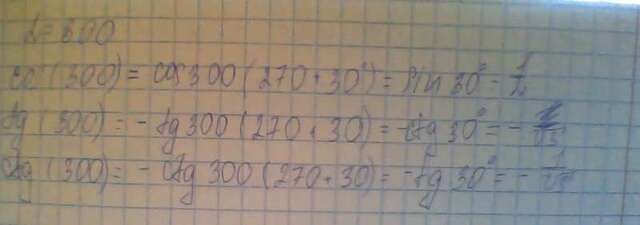 α = 300
cos (300) = cos 300 (270 + 30°) = sin 30° = 1/2
tg (300) = - tg 300 (270 + 30) = -ctg 30° = -
ctg (300) = - ctg 300 (270 + 30) = -tg 30° = - 1/√3